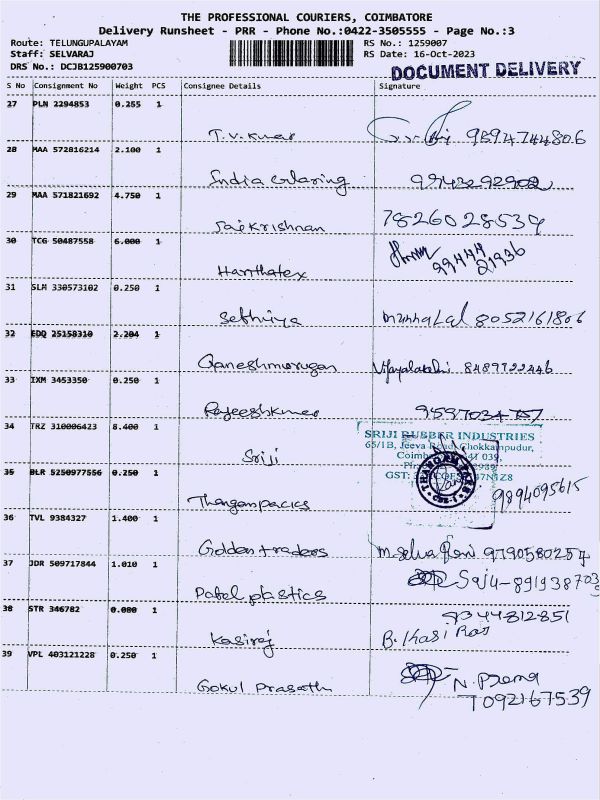 THE PROFESSIONAL COURIERS, COIMBATORE
Delivery Runsheet - PRR - Phone No.:0422-3505555 - Page No.:3
Route: TELUNGUPALAYAM RS No.: 1259007
Staff: SELVARAJ RS Date: 16-Oct-2023
DRS No.: DCJB125900703 DOCUMENT DELIVERY
S No Consignment No Weight PCS Consignee Details Signature
27 PLN 2294853 0.255 1
T.V. Kumar 9894744806
28 MAA 572816214 2.100 1
India 9943292902
29 MAA 571821692 4.750 1
Saikrishnan 7826028539
30 TCG 50487558 6.000 1
Harithatex 99444 21936
31 SLM 330573102 0.250 1
Sethiya mannalal 8052161806
32 EDQ 25158310 2.204 1
Ganeshmurugan Vijayalakshi 8489722446
33 IXM 3453350 0.250 1
Rajeeshkumar
34 TRZ 310006423 8.400 1
SRIJI RUBBER INDUSTRIES
65/1B, Jeeva Road, Chokkampudur,
Sriji
35 BLR 5250977556 0.250 1
GST:
Thanganpacics 9894095615
36 TVL 9384327 1.400 1
Golden traders 9790580257
37 JDR 509717844 1.010 1
Patel plastics Saju-
38 STR 346782 0.000 1
9344812851
Kasiraj B. Kasi Raj
39 VPL 403121228 0.250 1
Gokul Prasath N. Prema
7092167539